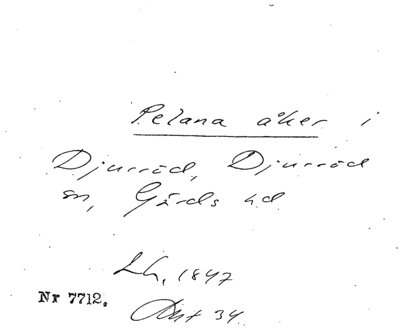 Pelana åker i
Djurröd, Djurröd
sn, Gärds hd
Lh, 1847
Nr 7712.
Akt 34